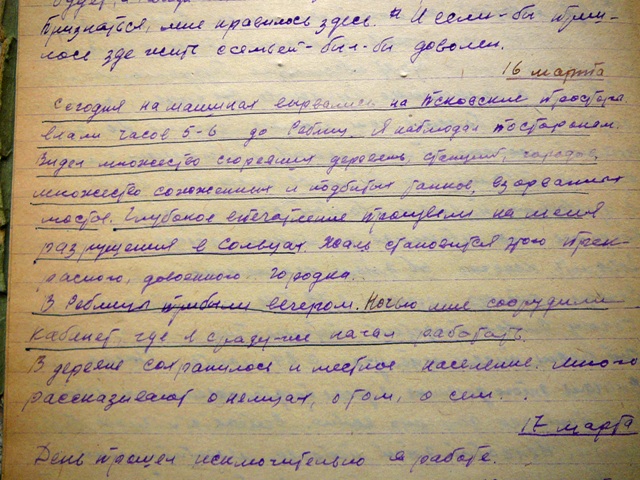 Признаться, мне нравилось здесь. И если-бы приш-
лось здесь жить с семьей - был-бы доволен.
16 марта
Сегодня на машинах вырвались на Псковские простора
ехали часов 5-6 до Реблиц. Я наблюдал по сторонам.
Видел множество сгоревших деревень, станций, городов,
множество сожженных и подбитых танков, взорванных
мостов. Глубокое впечатление произвели на меня
разрушения в Сольцах. Жаль становится этого прек-
расного, довоенного городка.
В Реблицы прибыли вечером. Ночью мне соорудили
кабинет, где я сразу-же начал работать.
В деревне сохранилось и местное население. Много
рассказывают о немцах, о том, о сем...
17 марта
День прошел исключительно в работе.